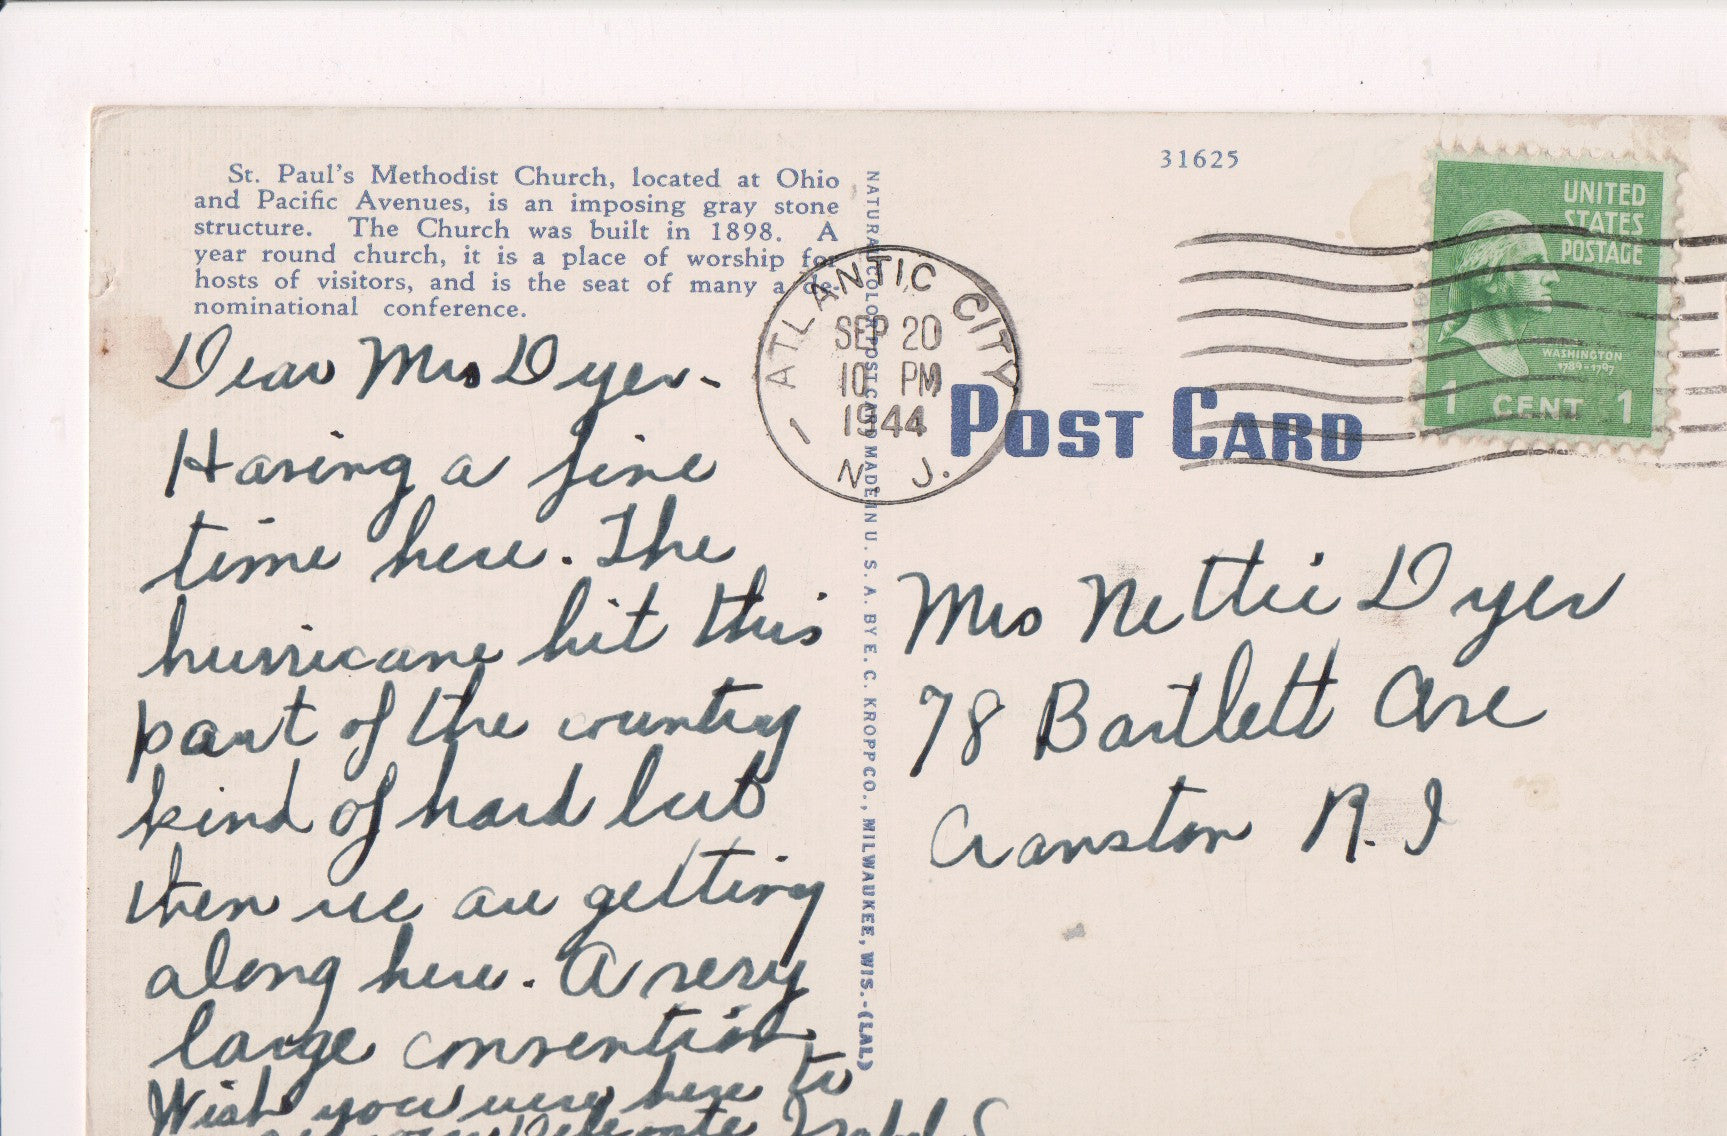 St. Paul's Methodist Church, located at Ohio
and Pacific Avenues, is an imposing gray stone
structure. The Church was built in 1898. A
year round church, it is a place of worship for
hosts of visitors, and is the seat of many a de-
nominational conference.
Dear Mrs Dyer-
Having a fine
time here. The
hurricane hit this
part of the country
kind of hard but
then we are getting
along here. A very
large convention
Wish you were here to
Isabel S
NATURAL COLOR POST CARD MADE IN U. S. A. BY E. C. KROPP CO., MILWAUKEE, WIS.-(LAL)
ATLANTIC CITY
SEP 20
10 PM
1944
1
N. J.
31625
POST CARD
UNITED
STATES
POSTAGE
WASHINGTON
1789-1797
1 CENT 1
Mrs Nettie Dyer
78 Bartlett Ave
Cranston R. I